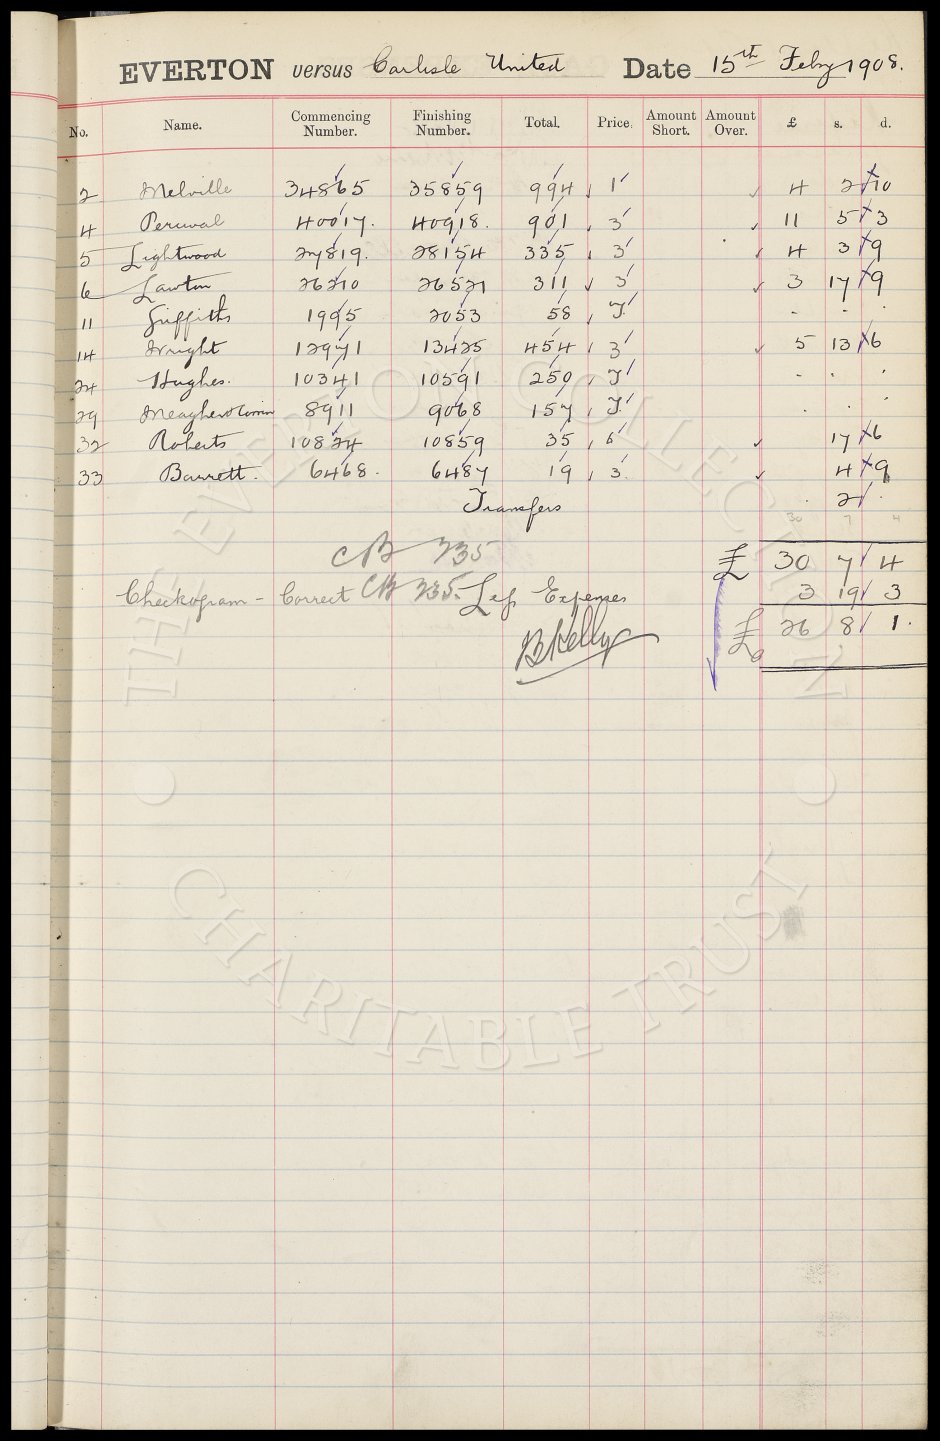 EVERTON versus Carlisle United Date 15th Feby 1908.
No. Name. Commencing Number. Finishing Number. Total. Price. Amount Short. Amount Over. £ s. d.
2 Melville 34865 35859 994 1 4 2 10
4 Percival 40017. 40918. 901 3 11 5 3
5 Lightwood 27819. 28154 335 3 4 3 9
6 Lawton 26210 26521 311 3 3 17 9
11 Griffiths 1995 2053 58 T. - . .
14 Wright 12971 13425 454 3 5 13 6
24 Hughes. 10341 10591 250 T - . .
29 Meagher 8911 9068 157 T . . .
32 Roberts 10824 10859 35 6 17 6
33 Barrett. 6468. 6487 19 3. 4 9
Transfers . 2 .
30 7 4
CB 735 £ 30 7 4
Checkogram - Correct CB 735. Less Expenses 3 19 3
£ 26 8 1.
B Kelly
THE EVERTON COLLECTION
CHARITABLE TRUST